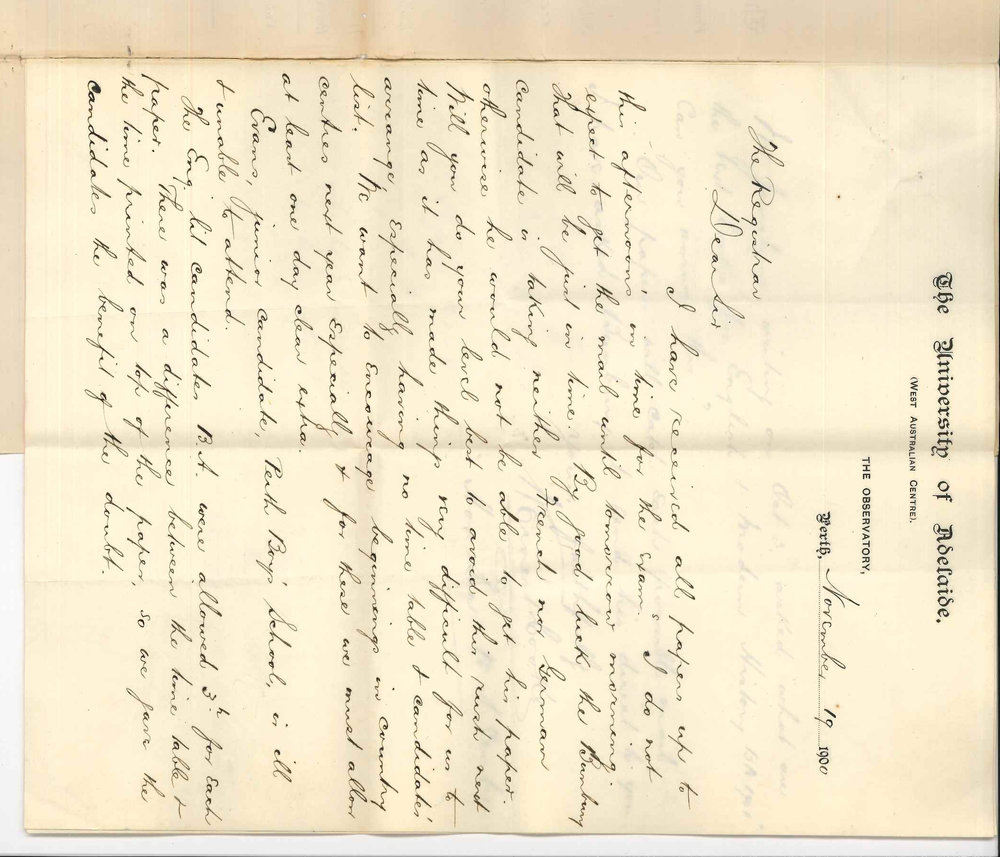 The University of Adelaide.
(WEST AUSTRALIAN CENTRE).
THE OBSERVATORY,
Perth, November 19 1900
The Registrar
Dear Sir
I have received all papers up to
this afternoons in time for the exam. I do not
expect to get the mail until tomorrow morning.
That will be just in time. By good luck the Bunbury
candidate is taking neither French nor German
otherwise he would not be able to get his paper.
Will you do your level best to avoid this rush next
time as it has made things very difficult for us to
arrange especially having no time table & candidates'
list. We want to encourage beginnings in country
centres next year especially & for these we must allow
at least one day clear extra.
Evans, junior candidate, Perth Boys' School, is ill
& unable to attend.
The Eng. lit candidates B.A. were allowed 3h for each
paper. There was a difference between the time table &
the time printed on top of the paper, so we gave the
candidates the benefit of the doubt.